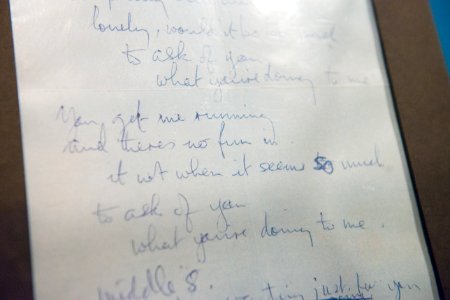 lonely, would it be too much
to ask of you
what you're doing to me
You, got me running
and theres no fun in
it not when it seems so much
to ask of you
what you're doing to me.
middle 8.
just for you